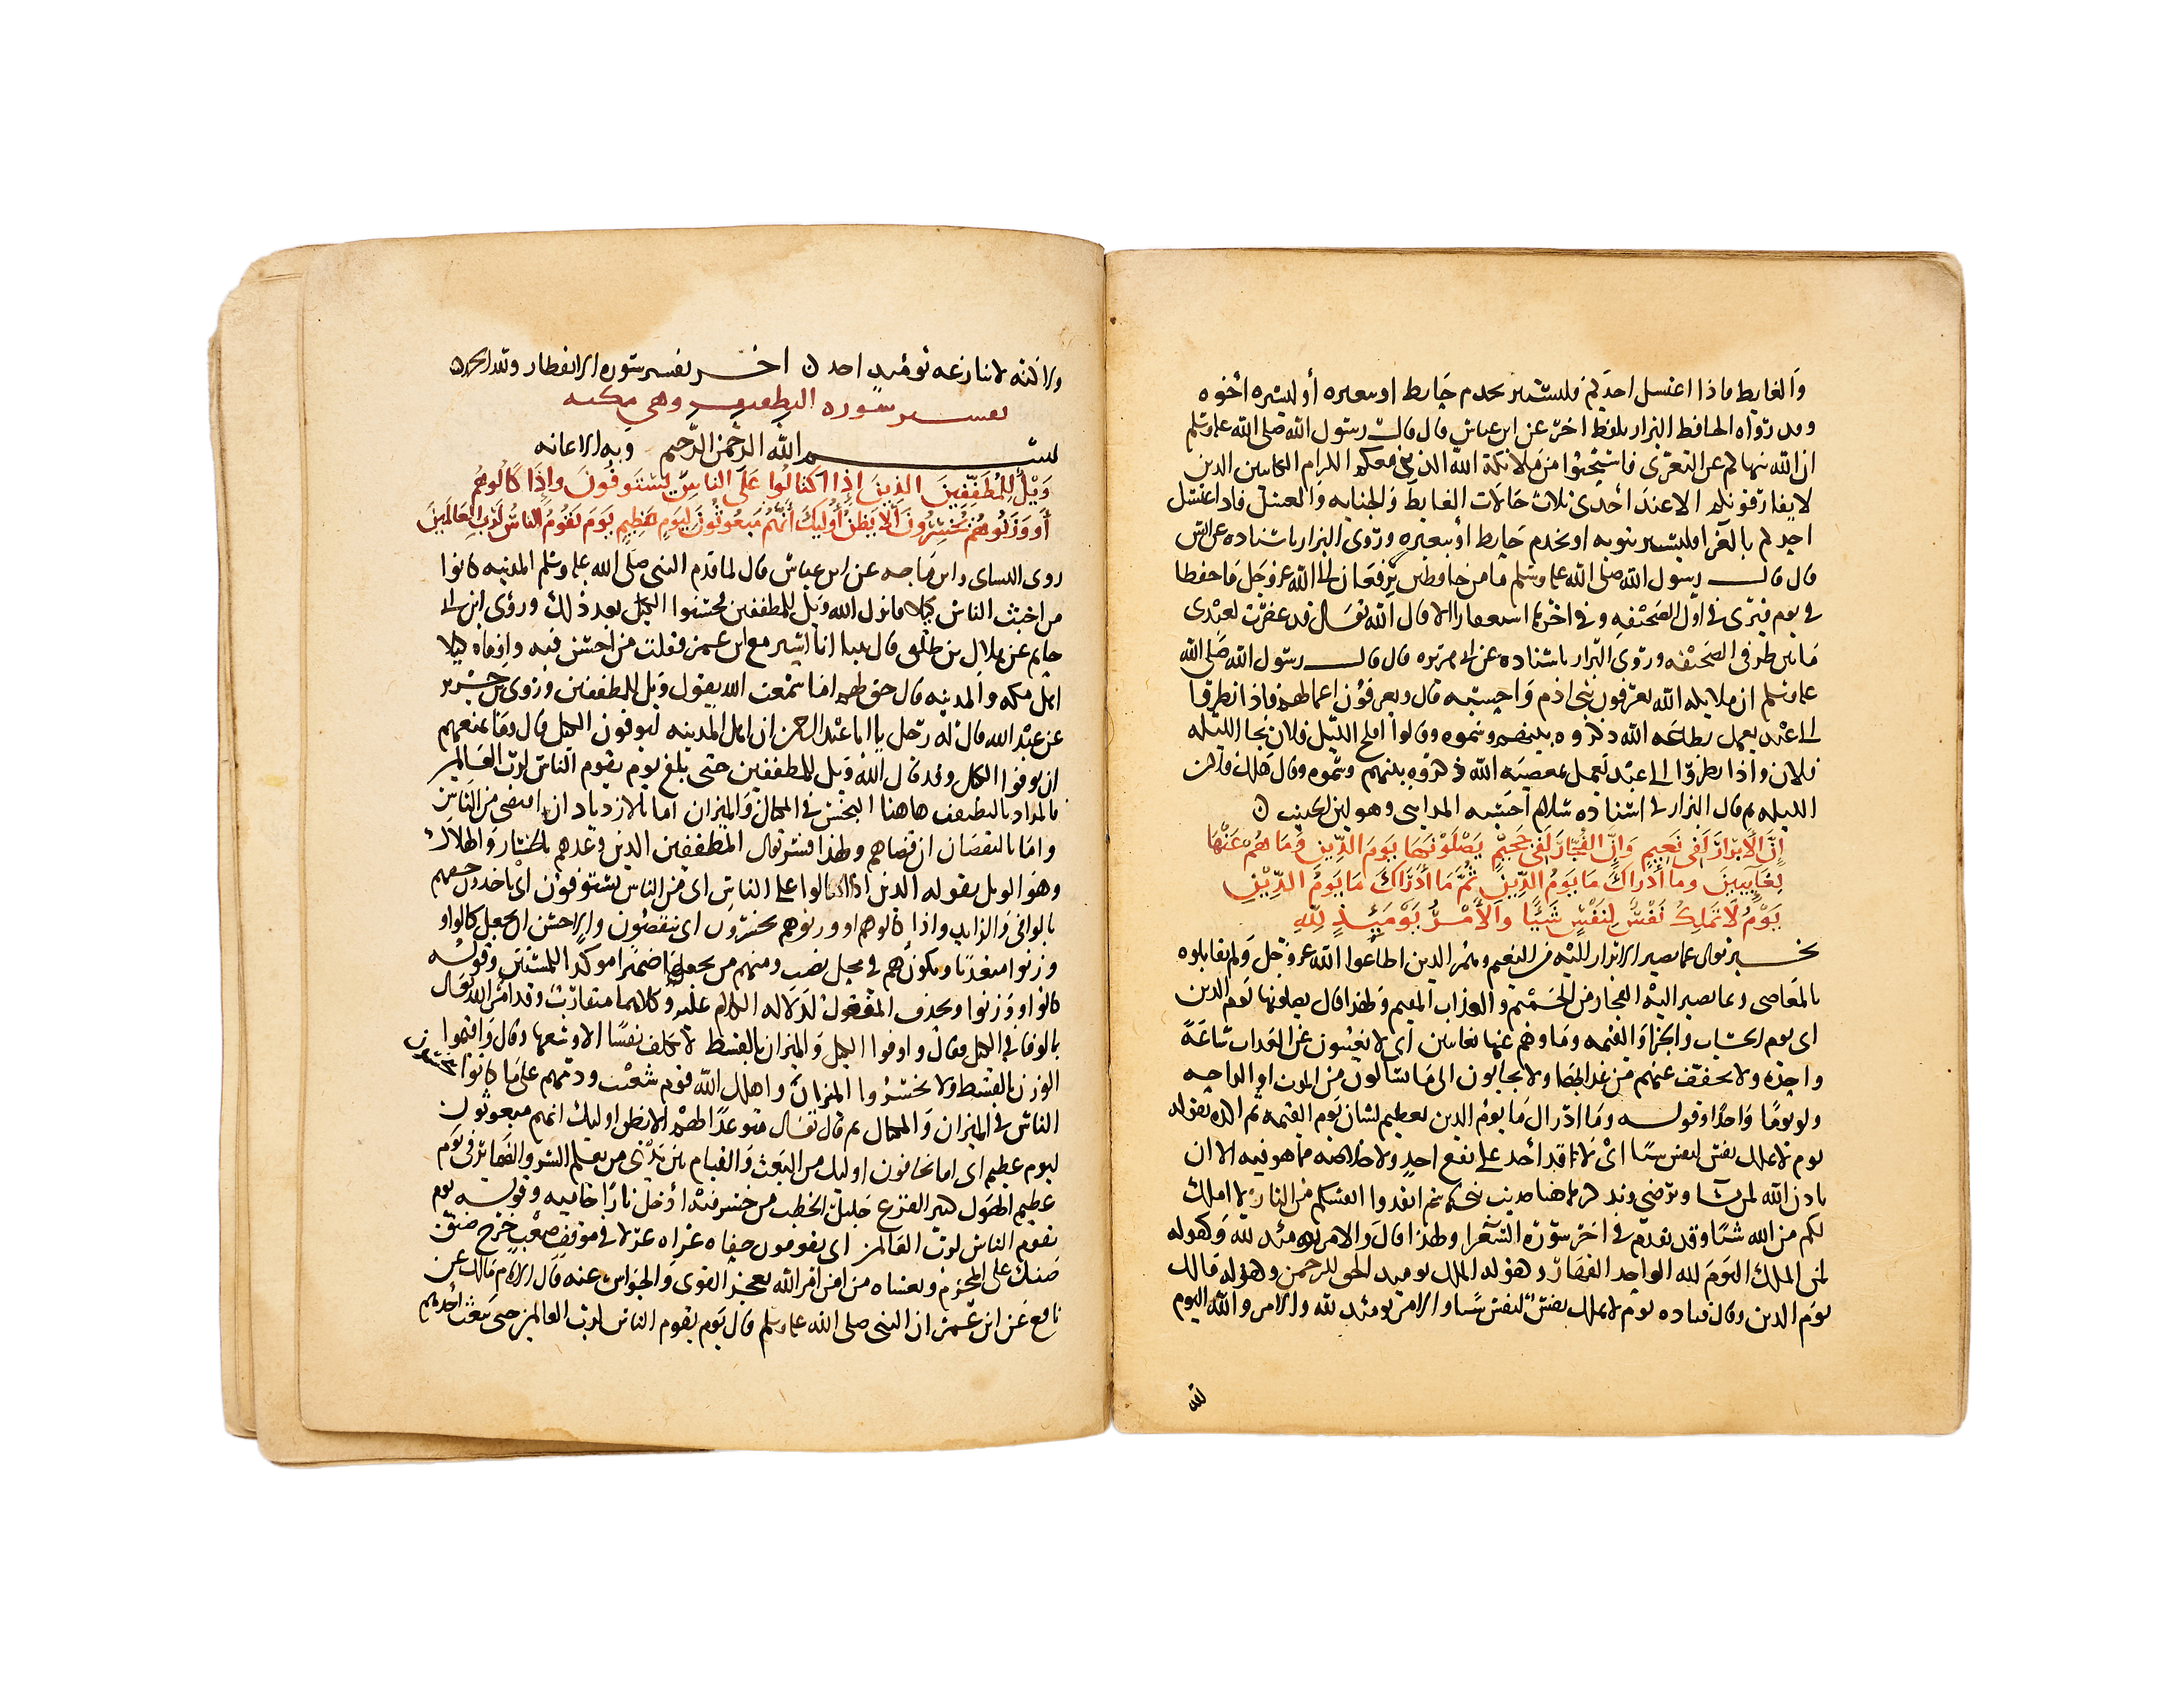 والغايط فاذا اغتسل احدكم فليستتر بجذم حايط او ببعيره أو ليستره أخوه
وقد رواه الحافظ البزار بلفظ اخر عن ابن عباس قال قال رسول الله صلى الله عليه وسلم
ان الله ينهاكم عن التعرى فاستحيوا من ملائكة الله الذين معكم الكرام الكاتبين الذين
لا يفارقونكم الا عند احدى ثلاث حالات الغايط والجنابه والغسل فاذا اغتسل
احدكم بالعرا فليستتر بثوبه او بجذم حايط أو ببعيره وروى البزار باسناده عن انس
قال قال رسول الله صلى الله عليه وسلم ما من حافظين يرفعان الى الله عز وجل ما حفظا
في يوم فيرى في اول الصحيفه وفي اخرها استغفارا الا قال الله تعالى قد غفرت لعبدى
ما بين طرفى الصحيفه وروى البزار باسناده عن ابى هريره قال قال رسول الله صلى الله
عليه وسلم ان ملايكه الله يعرفون بنى ادم واحسبه قال ويعرفون اعمالهم فاذا نظروا
الى عبد يعمل بطاعه الله ذكروه بينهم وسموه وقالوا افلح الليله فلان نجا الليله
فلان واذا نظروا الى عبد يعمل بمعصيه الله ذكروه بينهم وسموه وقال هلك فلان
الليله ثم قال البزار في اسناده سلام احسبه المداينى وهو لين الحديث ن
إن الأبرار لفى نعيم وإن الفجار لفى جحيم يصلونها يوم الدين وما هم عنها
بغايبين وما أدراك ما يوم الدين ثم ما أدراك ما يوم الدين
يوم لا تملك نفس لنفس شيًا والأمر يوميذ لله
يخبر تعالى عما يصير الابرار اليه من النعيم وهم الذين اطاعوا الله عز وجل ولم يقابلوه
بالمعاصى وعما يصير اليه الفجار من الجحيم والعذاب المقيم ولهذا قال يصلونها يوم الدين
اى يوم الحساب والجزا والقيمه وما هم عنها بغايبين اى لا يغيبون عن العذاب ساعة
واحده ولا يخفف عنهم من عذابها ولا يجابون الى ما يسالون من الموت او الراحه
ولو يومًا واحدًا وقوله وما ادراك ما يوم الدين تعظيم لشان يوم القيمه ثم اكده بقوله
يوم لا تملك نفس لنفس شيًا اى لا يقدر أحد على نفع احد ولا خلاصه مما هو فيه الا ان
ياذن الله لمن يشا ويرضى ونذكر هاهنا حديث بنى هاشم انقذوا انفسكم من النار لا املك
لكم من الله شيًا وقد تقدم في اخر سورة الشعرا ولهذا قال والامر يومئذ لله وكقوله
لمن الملك اليوم لله الواحد القهار وكقوله الملك يوميذ الحق للرحمن وكقوله مالك
يوم الدين وقال قتاده يوم لا تملك نفس لنفس شيًا والامر يومئذ لله والامر والله اليوم
لله
ولاكنه لا ينازعه يوميذ احد ن اخر تفسير سوره الانفطار ولله الحمد
تفسير سوره التطفيف وهى مكيه
بسم الله الرحمن الرحيم وبه الاعانه
ويل للمطففين الذين إذا اكتالوا على الناس يستوفون وإذا كالوهم
أو وزنوهم يخسرون ألا يظن أوليك أنهم مبعوثون ليوم عظيم يوم يقوم الناس لرب العالمين
روى النساى وابن ماجه عن ابن عباس قال لما قدم النبى صلى الله عليه وسلم المدينه كانوا
من اخبث الناس كيلا فانزل الله ويل للمطففين فحسنوا الكيل بعد ذلك وروى ابن ابى
حاتم عن هلال بن طلق قال بينا انا اسير مع ابن عمر فقلت من احسن هيه واوفاه كيلا
اهل مكه والمدينه قال حق لهم اما سمعت الله يقول ويل للمطففين وروى بن جرير
عن عبد الله قال له رجل يا ابا عبد الرحمن ان اهل المدينه ليوفون الكيل قال وما يمنعهم
ان يوفوا الكيل وقد قال الله ويل للمطففين حتى بلغ يوم يقوم الناس لرب العالمين
فالمراد بالتطفيف هاهنا البخس في المكيال والميزان اما بالازدياد ان اقتضى من الناس
واما بالنقصان ان قضاهم ولهذا فسر تعالى المطففين الذين وعدهم بالخسار والهلاك
وهو الويل بقوله الذين اذا اكتالوا على الناس اى من الناس يستوفون اى ياخذون حقهم
بالوافى والزايد واذا كالوهم او وزنوهم يخسرون اى ينقصون والاحسن ان يجعل كالوا و
وزنوا متعديًا ويكون هم في محل نصب ومنهم من يجعلها ضميرا موكدا للمستتر وقوله
كالوا ووزنوا ويحذف المفعول لدلاله الكلام عليه وكلاهما متقارب وقد امر الله تعالى
بالوفا في الكيل فقال واوفوا الكيل والميزان بالقسط لا نكلف نفسًا الا وسعها وقال واقيموا
الوزن بالقسط ولا تخسروا الميزان واهلك الله قوم شعيب ودمرهم على ما كانوا يبخسون
الناس في الميزان والمكيال ثم قال تعالى متوعدًا لهم الا يظن اوليك انهم مبعوثون
ليوم عظيم اى اما يخافون اوليك من البعث والقيام بين يدى من يعلم السر والضماير فى يوم
عظيم الهول كثير الفزع جليل الخطب من خسر فيه أدخل نارًا حاميه وقوله يوم
يقوم الناس لرب العالمين اى يقومون حفاه عراه غرلا في موقف صعب حرج ضيق
ضنك على المجرم ويغشاه من امر الله تعجز القوى والحواس عنه قال الامام مالك عن
نافع عن ابن عمر ان النبى صلى الله عليه وسلم قال يوم يقوم الناس لرب العالمين حتى يغيب أحدهم